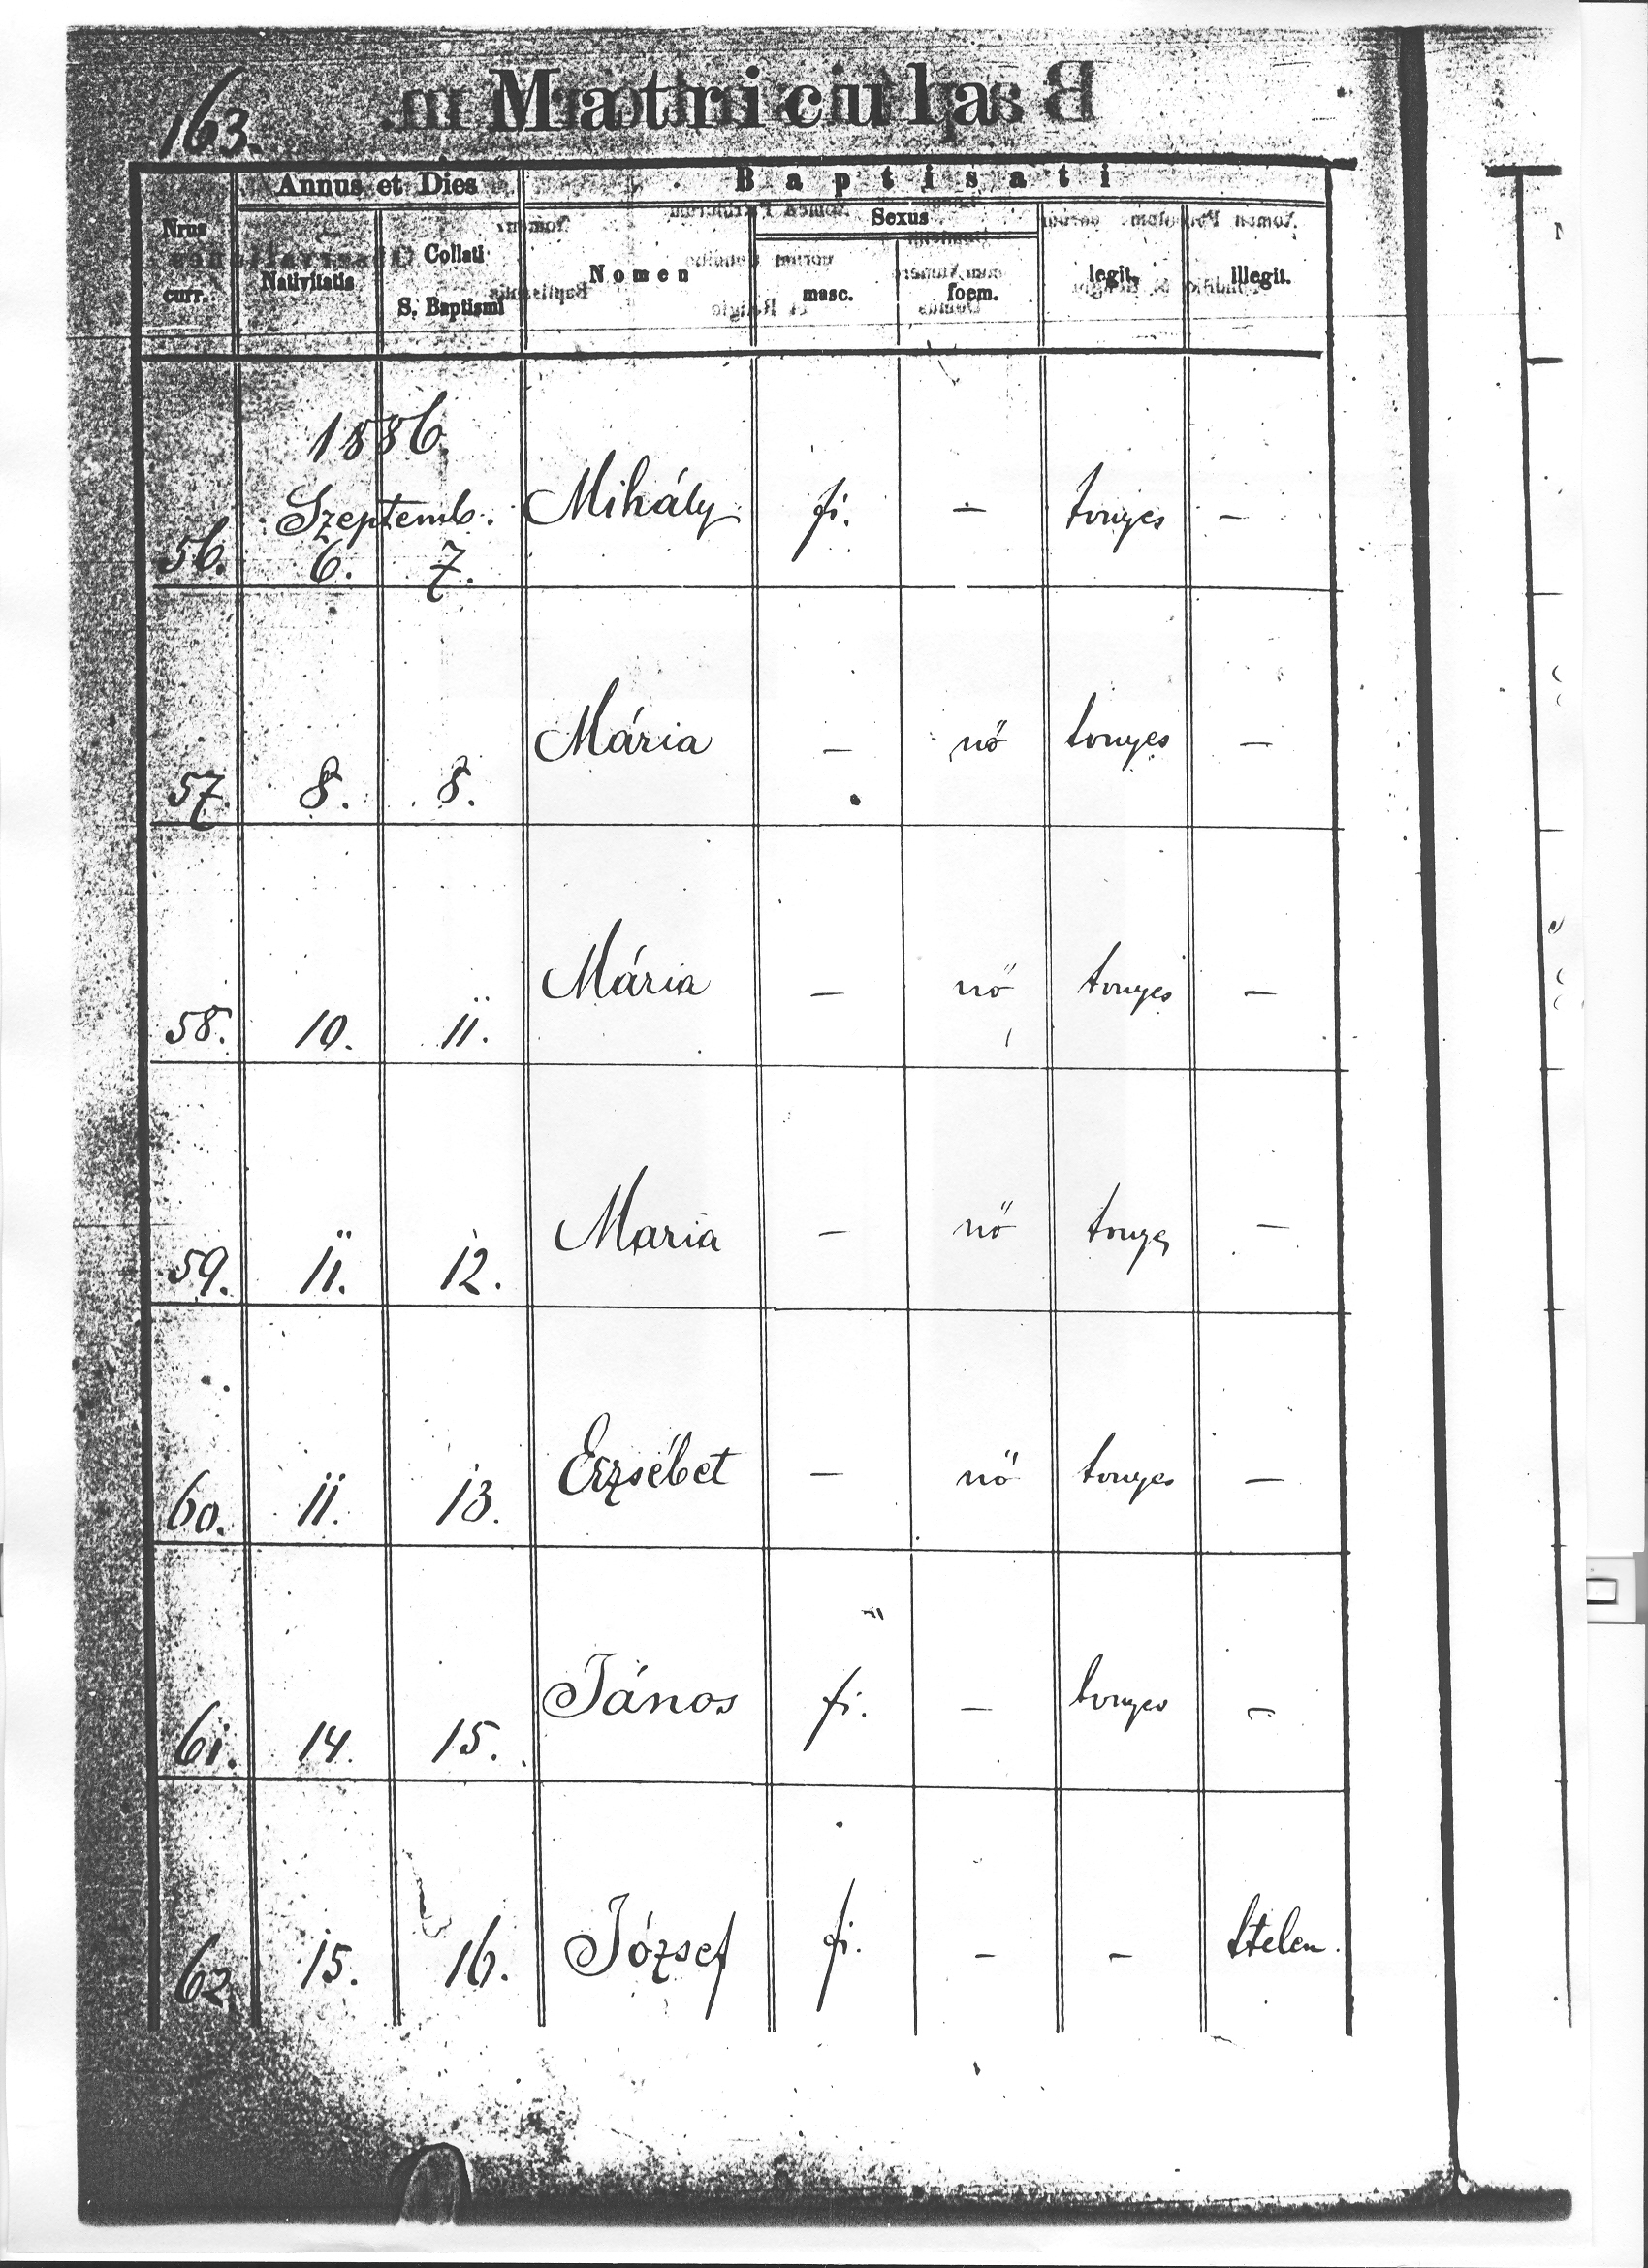 163.
Matricula
Annus et Dies
Baptisati
Nrus
curr.
Nativitatis
Collati
S. Baptismi
Nomen
Sexus
masc.
foem.
legit.
illegit.
1886.
Szeptemb.
56. 6. 7. Mihály fi. — tvnyes —
57. 8. 8. Mária — nő tvnyes —
58. 10. 11. Mária — nő tvnyes —
59. 11. 12. Maria — nő tvnyes —
60. 11. 13. Erzsébet — nő tvnyes —
61. 14. 15. János fi. — tvnyes —
62. 15. 16. József fi. — — ttelen.